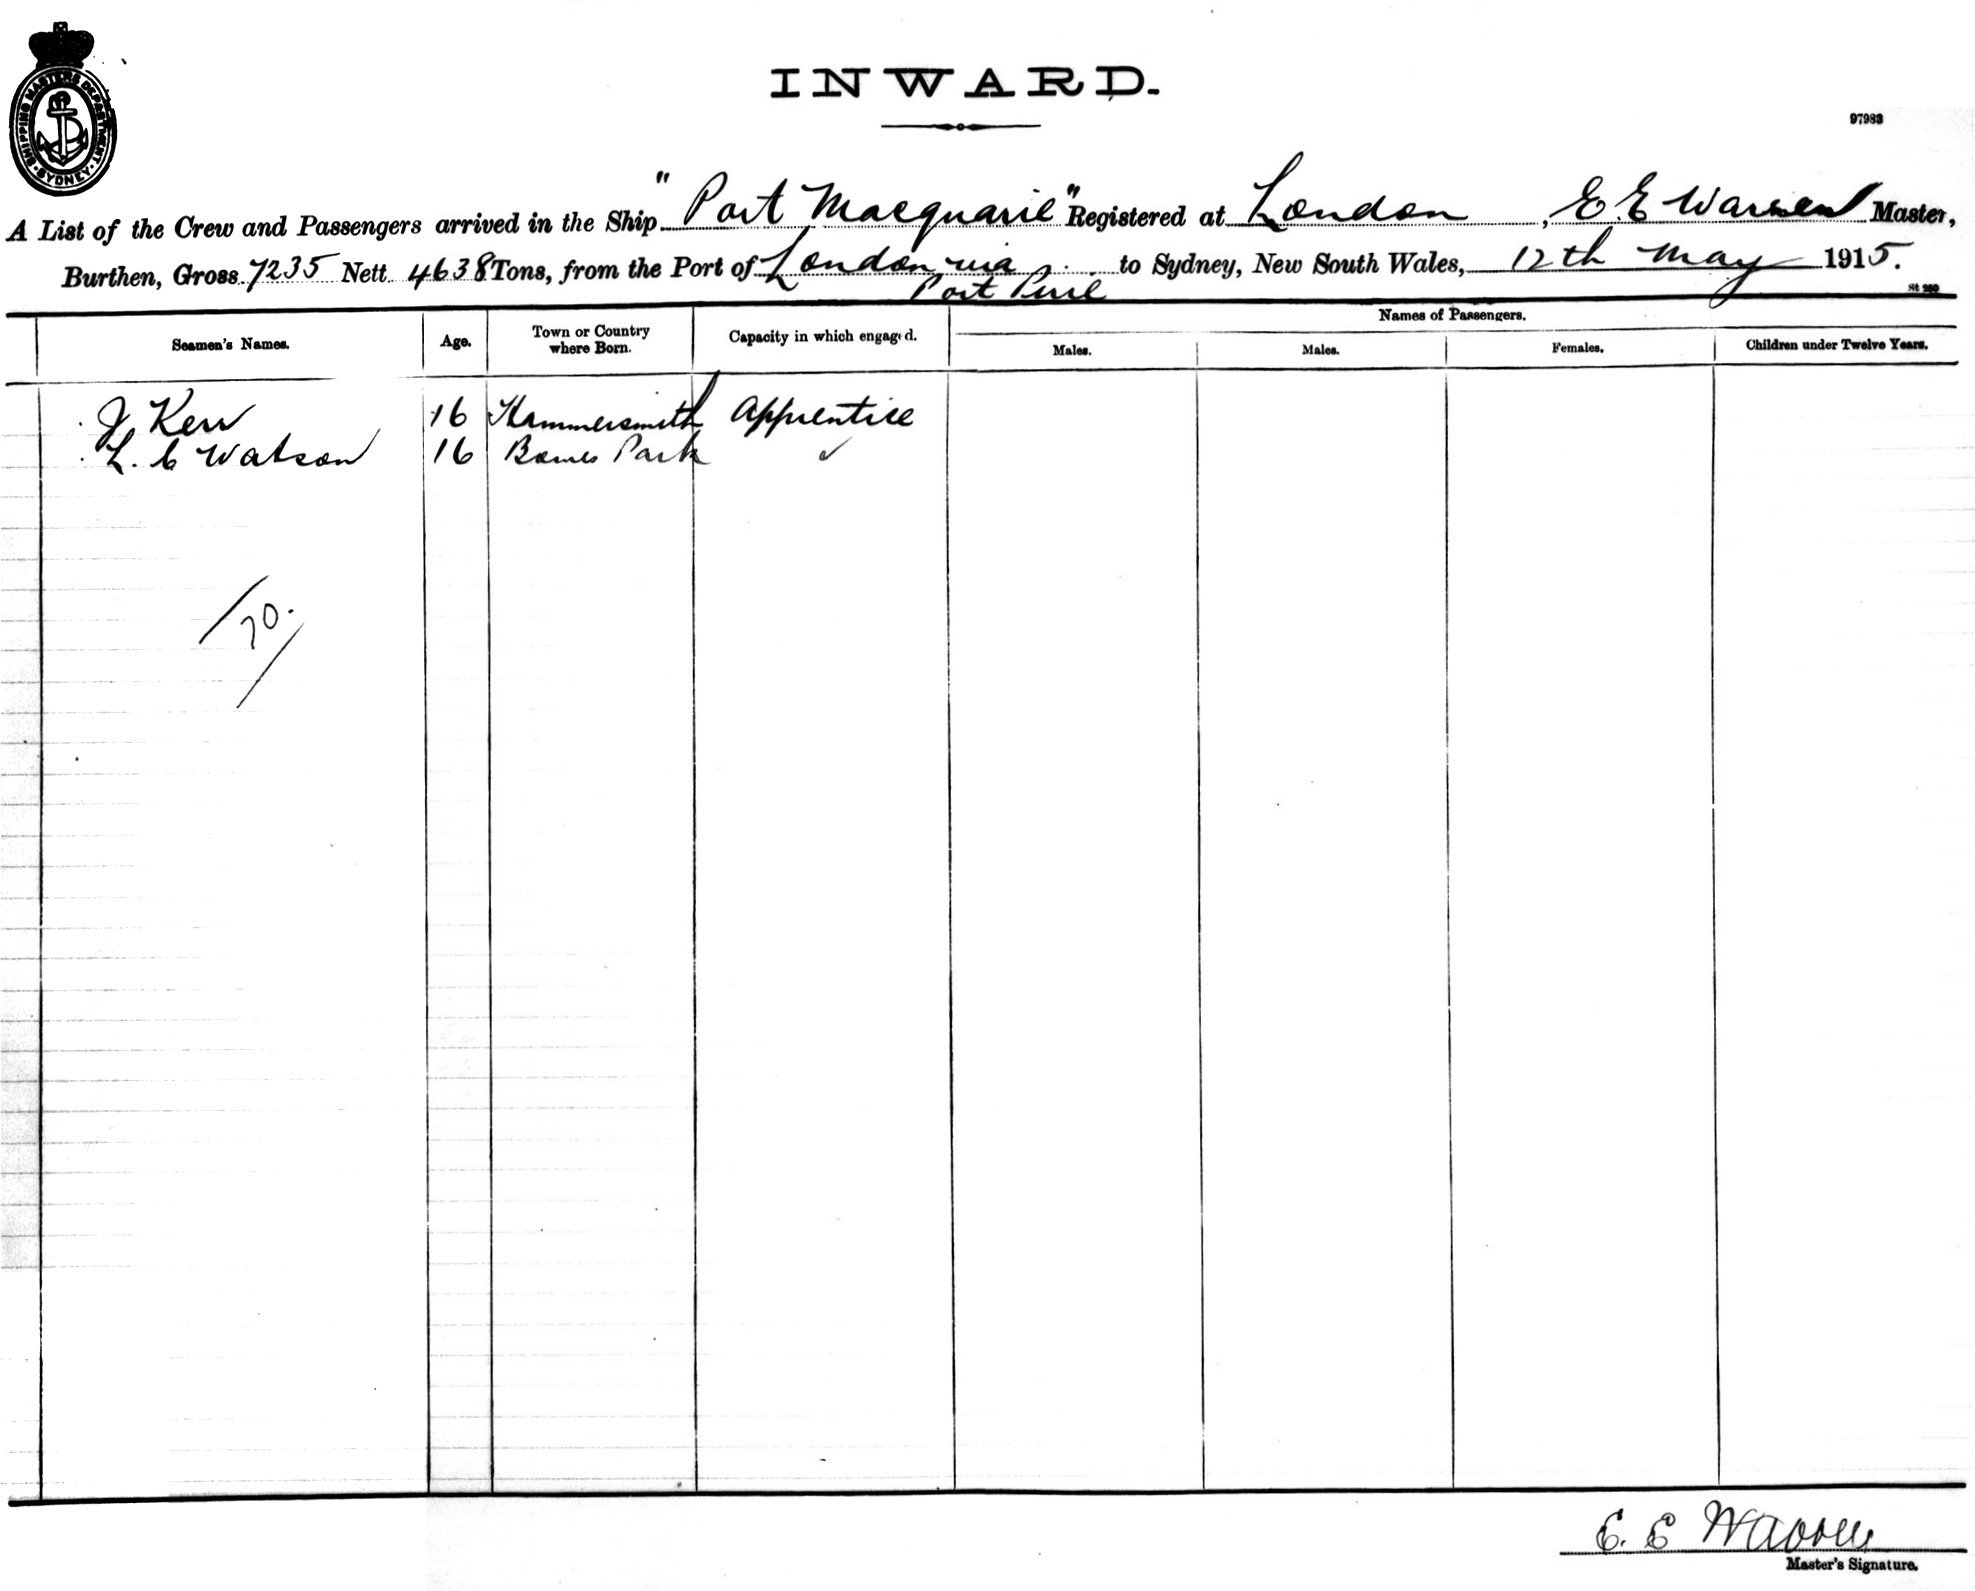 SHIPPING MASTERS DEPARTMENT. SYDNEY.
INWARD.
97983
A List of the Crew and Passengers arrived in the Ship "Port Macquarie" Registered at London, E. E Warren Master,
Burthen, Gross 7235 Nett 4638 Tons, from the Port of London via to Sydney, New South Wales, 12th May 1915.
Port Pirie
St 280
Names of Passengers.
Seamen's Names. Age. Town or Country where Born. Capacity in which engaged. Males. Males. Females. Children under Twelve Years.
J Kerr 16 Hammersmith Apprentice
L. C Watson 16 Bowes Park ✓
70.
E. E Warren
Master's Signature.